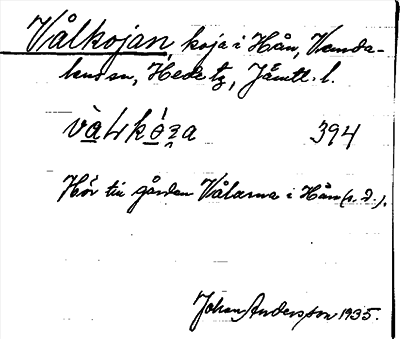 Vålkojan, koja i Hån, Vemda-
len sn, Hede tg, Jämtl. l.
vàLkóʒa 394
Hör till gården Vålarna i Hån (s. d.).
Johan Andersson 1935.